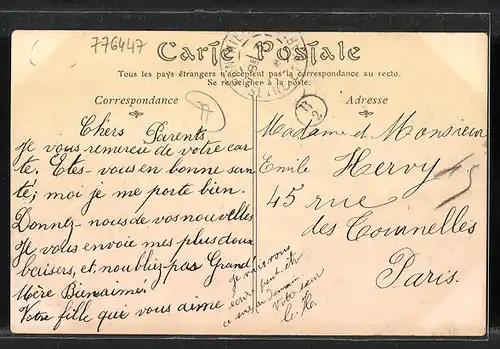 776447
Carte Postale
Tous les pays étrangers n'acceptent pas la correspondance au recto.
Se renseigner à la poste.
Correspondance
Adresse
Chers Parents
Je vous remercie de votre car-
te. Etes-vous en bonne san
té; moi je me porte bien.
Donnez-nous de vos nouvelles
Je vous envoie mes plus doux
baisers, et, noubliez-pas Grand'
Mère Bienaimé.
Votre fille qui vous aime
Je vais vous
écrir
demain
C. H.
R
2
Madame et Monsieur
Emile Hervy
45 rue
des Tournelles
Paris.